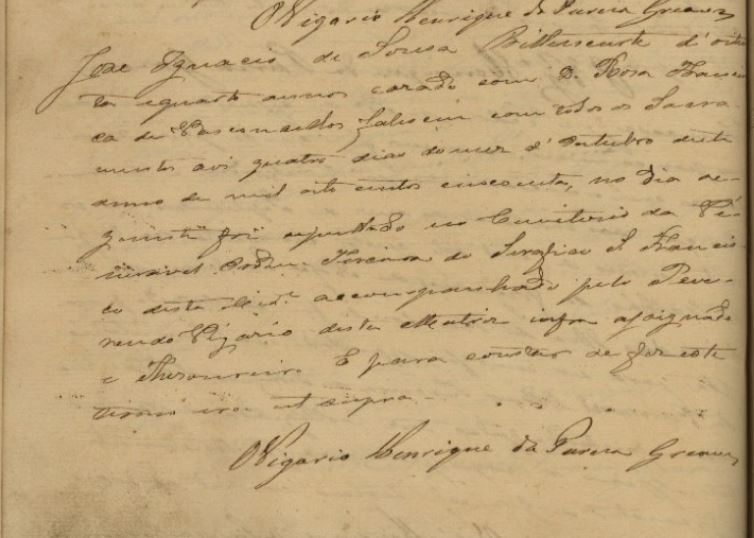 O Vigario Henrique da
José Ignacio de Sousa Bittencourt d'oiten
ta equatro annos casado com D. Rosa Francis
ca de Vasconcellos, faleceu com todos os Sacra-
mentos aos quatro dias do mez d'Outubro deste
anno de mil oito centos cincoenta, no dia se-
guinte foi sepultado no Cemiterio da Ve-
neravel Ordem Terceira do Serafico S. Francis
co desta Cid.e accompanhado pelo Reve-
rendo Vigario desta Matriz infra assignado
e Thesoureiro. E para constar de fiz este
termo era ut supra.
O Vigario Henrique da